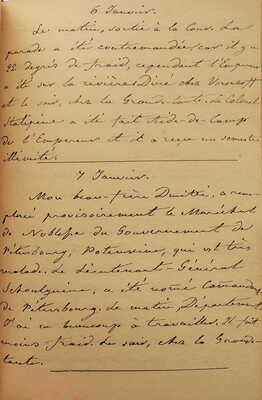 6 Janvier.
Le matin, sortie à la Cour. La
parade a été contremandée, car il y a
22 degrés de froid, cependant l'Empereur
a été sur la rivière. Diné chez Woronzoff
et le soir, chez la Grande-tante. Le Colonel
Stolipine a été fait Aide-de-Camp
de l'Empereur et il a reçu un semestre
illimité.
7 Janvier.
Mon beau-frère Dmitri, a rem-
placé provisoirement le Maréchal
de Noblesse du Gouvernement de
Pétersbourg, Potemkine, qui est très
malade. Le Lieutenant-Général
Schoulguine, a été nommé Commandant
de Pétersbourg. Le matin, Département,
J'ai eu beaucoup à travailler. Il fait
moins froid. Le soir, chez la Grande-
tante.